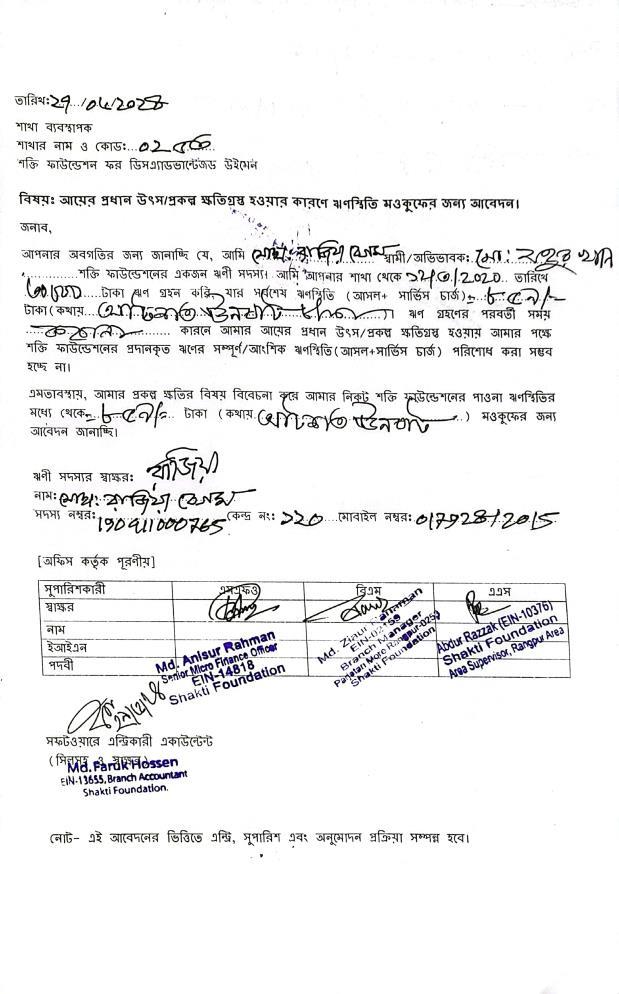 তারিখ:
শাখা ব্যবস্থাপক
শাখার নাম ও কোড:
শক্তি ফাউন্ডেশন ফর ডিসএ্যাডভান্টেজড উইমেন
বিষয়: আয়ের প্রধান উৎস/প্রকল্প ক্ষতিগ্রস্থ হওয়ার কারণে ঋণস্থিতি মওকুফের জন্য আবেদন।
জনাব,
আপনার অবগতির জন্য জানাচ্ছি যে, আমি মোছা: রাজিয়া বেগম স্বামী/অভিভাবক: মো:
শক্তি ফাউন্ডেশনের একজন ঋণী সদস্য। আমি আপনার শাখা থেকে তারিখে
টাকা ঋণ গ্রহন করি যার সর্বশেষ ঋণস্থিতি (আসল+ সার্ভিস চার্জ) ৮৫৯/=
টাকা (কথায় আটশত ঊনষাট) ঋণ গ্রহণের পরবর্তী সময়
কারনে আমার আয়ের প্রধান উৎস/প্রকল্প ক্ষতিগ্রস্থ হওয়ায় আমার পক্ষে
শক্তি ফাউন্ডেশনের প্রদানকৃত ঋণের সম্পূর্ণ/আংশিক ঋণস্থিতি (আসল+সার্ভিস চার্জ) পরিশোধ করা সম্ভব
হচ্ছে না।
এমতাবস্থায়, আমার প্রকল্প ক্ষতির বিষয় বিবেচনা করে আমার নিকট শক্তি ফাউন্ডেশনের পাওনা ঋণস্থিতির
মধ্যে থেকে= ৮৫৯/= টাকা (কথায় আটশত ঊনষাট) মওকুফের জন্য
আবেদন জানাচ্ছি।
ঋণী সদস্যর স্বাক্ষর: রাজিয়া
নাম: মোছা: রাজিয়া বেগম
সদস্য নম্বর: কেন্দ্র নং: ১২০ মোবাইল নম্বর:
[অফিস কর্তৃক পূরণীয়]
সুপারিশকারী এসএফও বিএম এএস
স্বাক্ষর
নাম
ইআইএন
পদবী
Md. Anisur Rahman
Senior Micro Finance Officer
EIN-14818
Shakti Foundation
Md. Ziaur Rahaman
Branch Manager
Shakti Foundation
Abdur Razzak (EIN-10376)
Shakti Foundation
Area Supervisor, Rangpur Area
সফটওয়ারে এন্ট্রিকারী একাউন্টেন্ট
Md. Faruk Hossen
EIN-13655, Branch Accountant
Shakti Foundation.
নোট- এই আবেদনের ভিত্তিতে এন্ট্রি, সুপারিশ এবং অনুমোদন প্রক্রিয়া সম্পন্ন হবে।